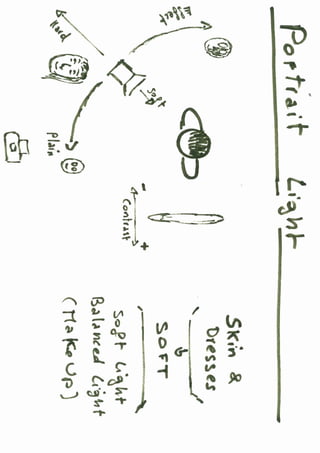 Portrait Light
Effect
Hard
Soft
Plain
- Contrast +
Skin &
Dresses
SOFT
Soft Light
Balanced Light
(MakeUp)